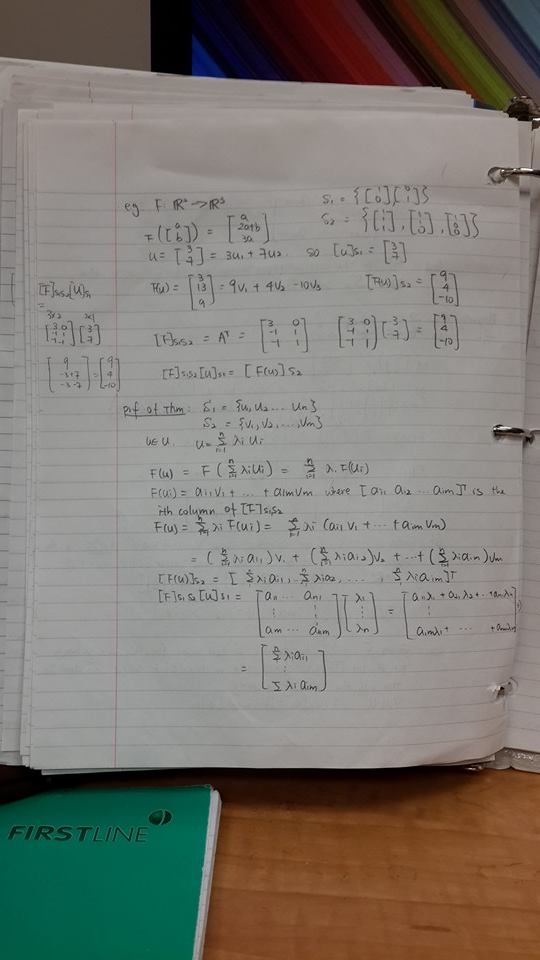 eg F: ℝ² → ℝ³ S₁ = {[1 0][0 1]}
F([a b]) = [a 2a+b 3a] S₂ = {[1 1 1], [1 1 0], [1 0 0]}
u = [3 7] = 3u₁ + 7u₂ so [u]s₁ = [3 7]
F(u) = [3 13 9] = 9v₁ + 4v₂ - 10v₃ [F(u)]s₂ = [9 4 -10]
[F]s₁s₂[u]s₁
=
3x2 2x1
[3 0 -1 1 -1 -1][3 7]
[9 -3+7 -3-7] = [9 4 -10]
[F]s₁s₂ = Aᵀ = [3 0 -1 1 -1 1] [3 0 -1 1 -1 1][3 7] = [9 4 -10]
[F]s₁s₂[u]s₁ = [F(u)]s₂
Prf of Thm: S₁ = {u₁, u₂ ... un}
S₂ = {v₁, v₂, ..., vm}
u∈U. u = Σⁿᵢ₌₁ λᵢuᵢ
F(u) = F(Σⁿᵢ₌₁ λᵢuᵢ) = Σⁿᵢ₌₁ λᵢ F(uᵢ)
F(uᵢ) = aᵢ₁v₁ + ... + aimvm where [aᵢ₁ aᵢ₂ ... aim]ᵀ is the
ith column of [F]s₁s₂
F(u) = Σⁿᵢ₌₁ λᵢ F(uᵢ) = Σⁿᵢ₌₁ λᵢ (aᵢ₁v₁ + ... + aimvm)
= (Σⁿᵢ₌₁ λᵢaᵢ₁)v₁ + (Σⁿᵢ₌₁ λᵢaᵢ₂)v₂ + ... + (Σⁿᵢ₌₁ λᵢaim)vm
[F(u)]s₂ = [Σⁿᵢ₌₁ λᵢaᵢ₁, Σⁿᵢ₌₁ λᵢa₂, ..., Σⁿᵢ₌₁ λᵢaim]ᵀ
[F]s₁s₂[u]s₁ = [a₁₁ ... an₁ ⋮ ⋮ a₁m ... anm][λ₁ ⋮ λn] = [a₁₁λ₁ + a₂₁λ₂ + ... + an₁λn ⋮ a₁mλ₁ + ... + anmλn]
= [Σⁿᵢ₌₁ λᵢaᵢ₁ ⋮ Σ λᵢaim]
FIRSTLINE